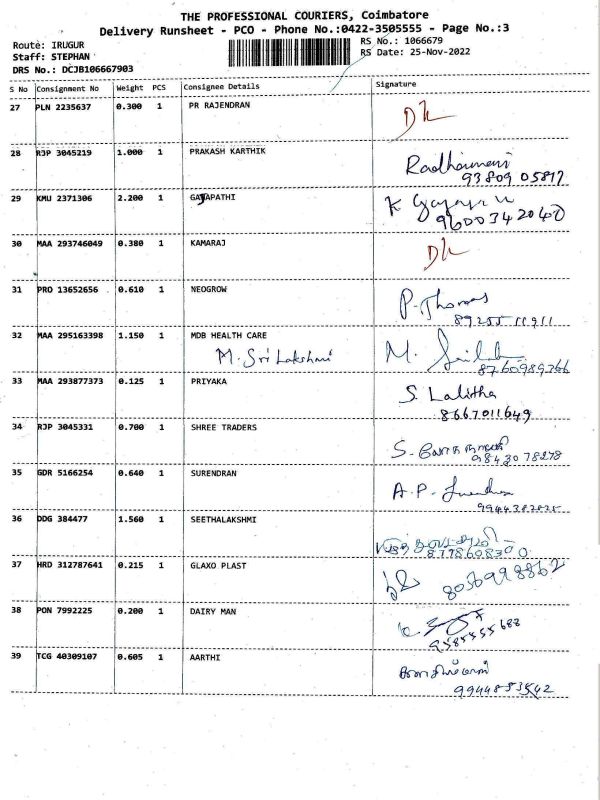 THE PROFESSIONAL COURIERS, Coimbatore
Delivery Runsheet - PCO - Phone No.:0422-3505555 - Page No.:3
Route: IRUGUR
Staff: STEPHAN
DRS No.: DCJB106667903
RS No.: 1066679
RS Date: 25-Nov-2022
S No Consignment No Weight PCS Consignee Details Signature
27 PLN 2235637 0.300 1 PR RAJENDRAN
28 RJP 3045219 1.000 1 PRAKASH KARTHIK Radhamani
93809 05897
29 KMU 2371306 2.200 1 GAJAPATHI K
9600342040
30 MAA 293746049 0.380 1 KAMARAJ
31 PRO 13652656 0.610 1 NEOGROW P. Thomas
89255 11911
32 MAA 295163398 1.150 1 MDB HEALTH CARE M.
M. Sri Lakshmi 8760989366
33 MAA 293877373 0.125 1 PRIYAKA S. Lalitha
8667011649
34 RJP 3045331 0.700 1 SHREE TRADERS S.
98430 78278
35 GDR 5166254 0.640 1 SURENDRAN A.P.
36 DDG 384477 1.560 1 SEETHALAKSHMI
8778608300
37 HRD 312787641 0.215 1 GLAXO PLAST
8056998862
38 PON 7992225 0.200 1 DAIRY MAN
9585555688
39 TCG 40309107 0.605 1 AARTHI
9944853542